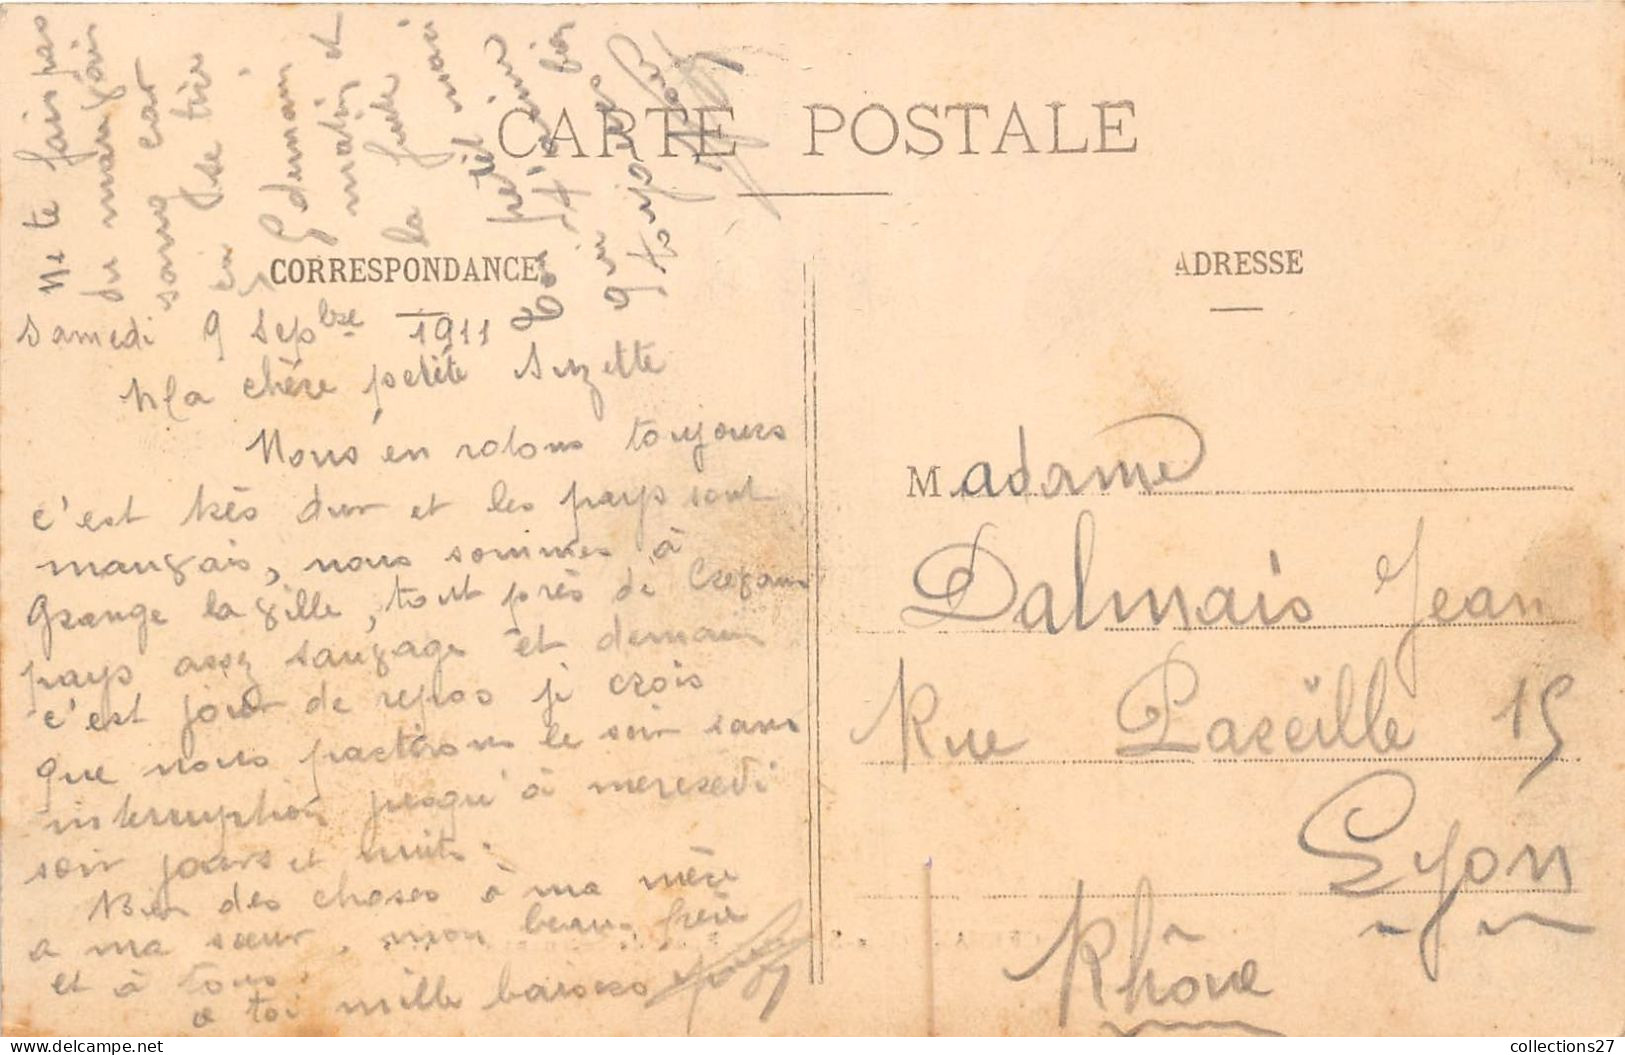 CARTE POSTALE
CORRESPONDANCE
ADRESSE
Samedi 9 Sepbre 1911
Ma chère petite Suzette
Nous en rotons toujours
c'est très dur et les pays sont
mauvais, nous sommes à
Grange la ville, tout près de Crevans
pays assez sauvage et demain
c'est jour de repos je crois
que nous partirons le soir sans
interruption jusqu'à mercredi
soir jours et nuits.
Bien des choses à ma mère
a ma sœur, mon beau frère
et à tous
a toi mille baisers
Ne te fais pas
du mauvais
sang car
on se tire
demain
matin et
la fuite
Ton
qui
Madame
Dalmais Jean
Rue Pareille 15
Lyon
Rhône
collections27